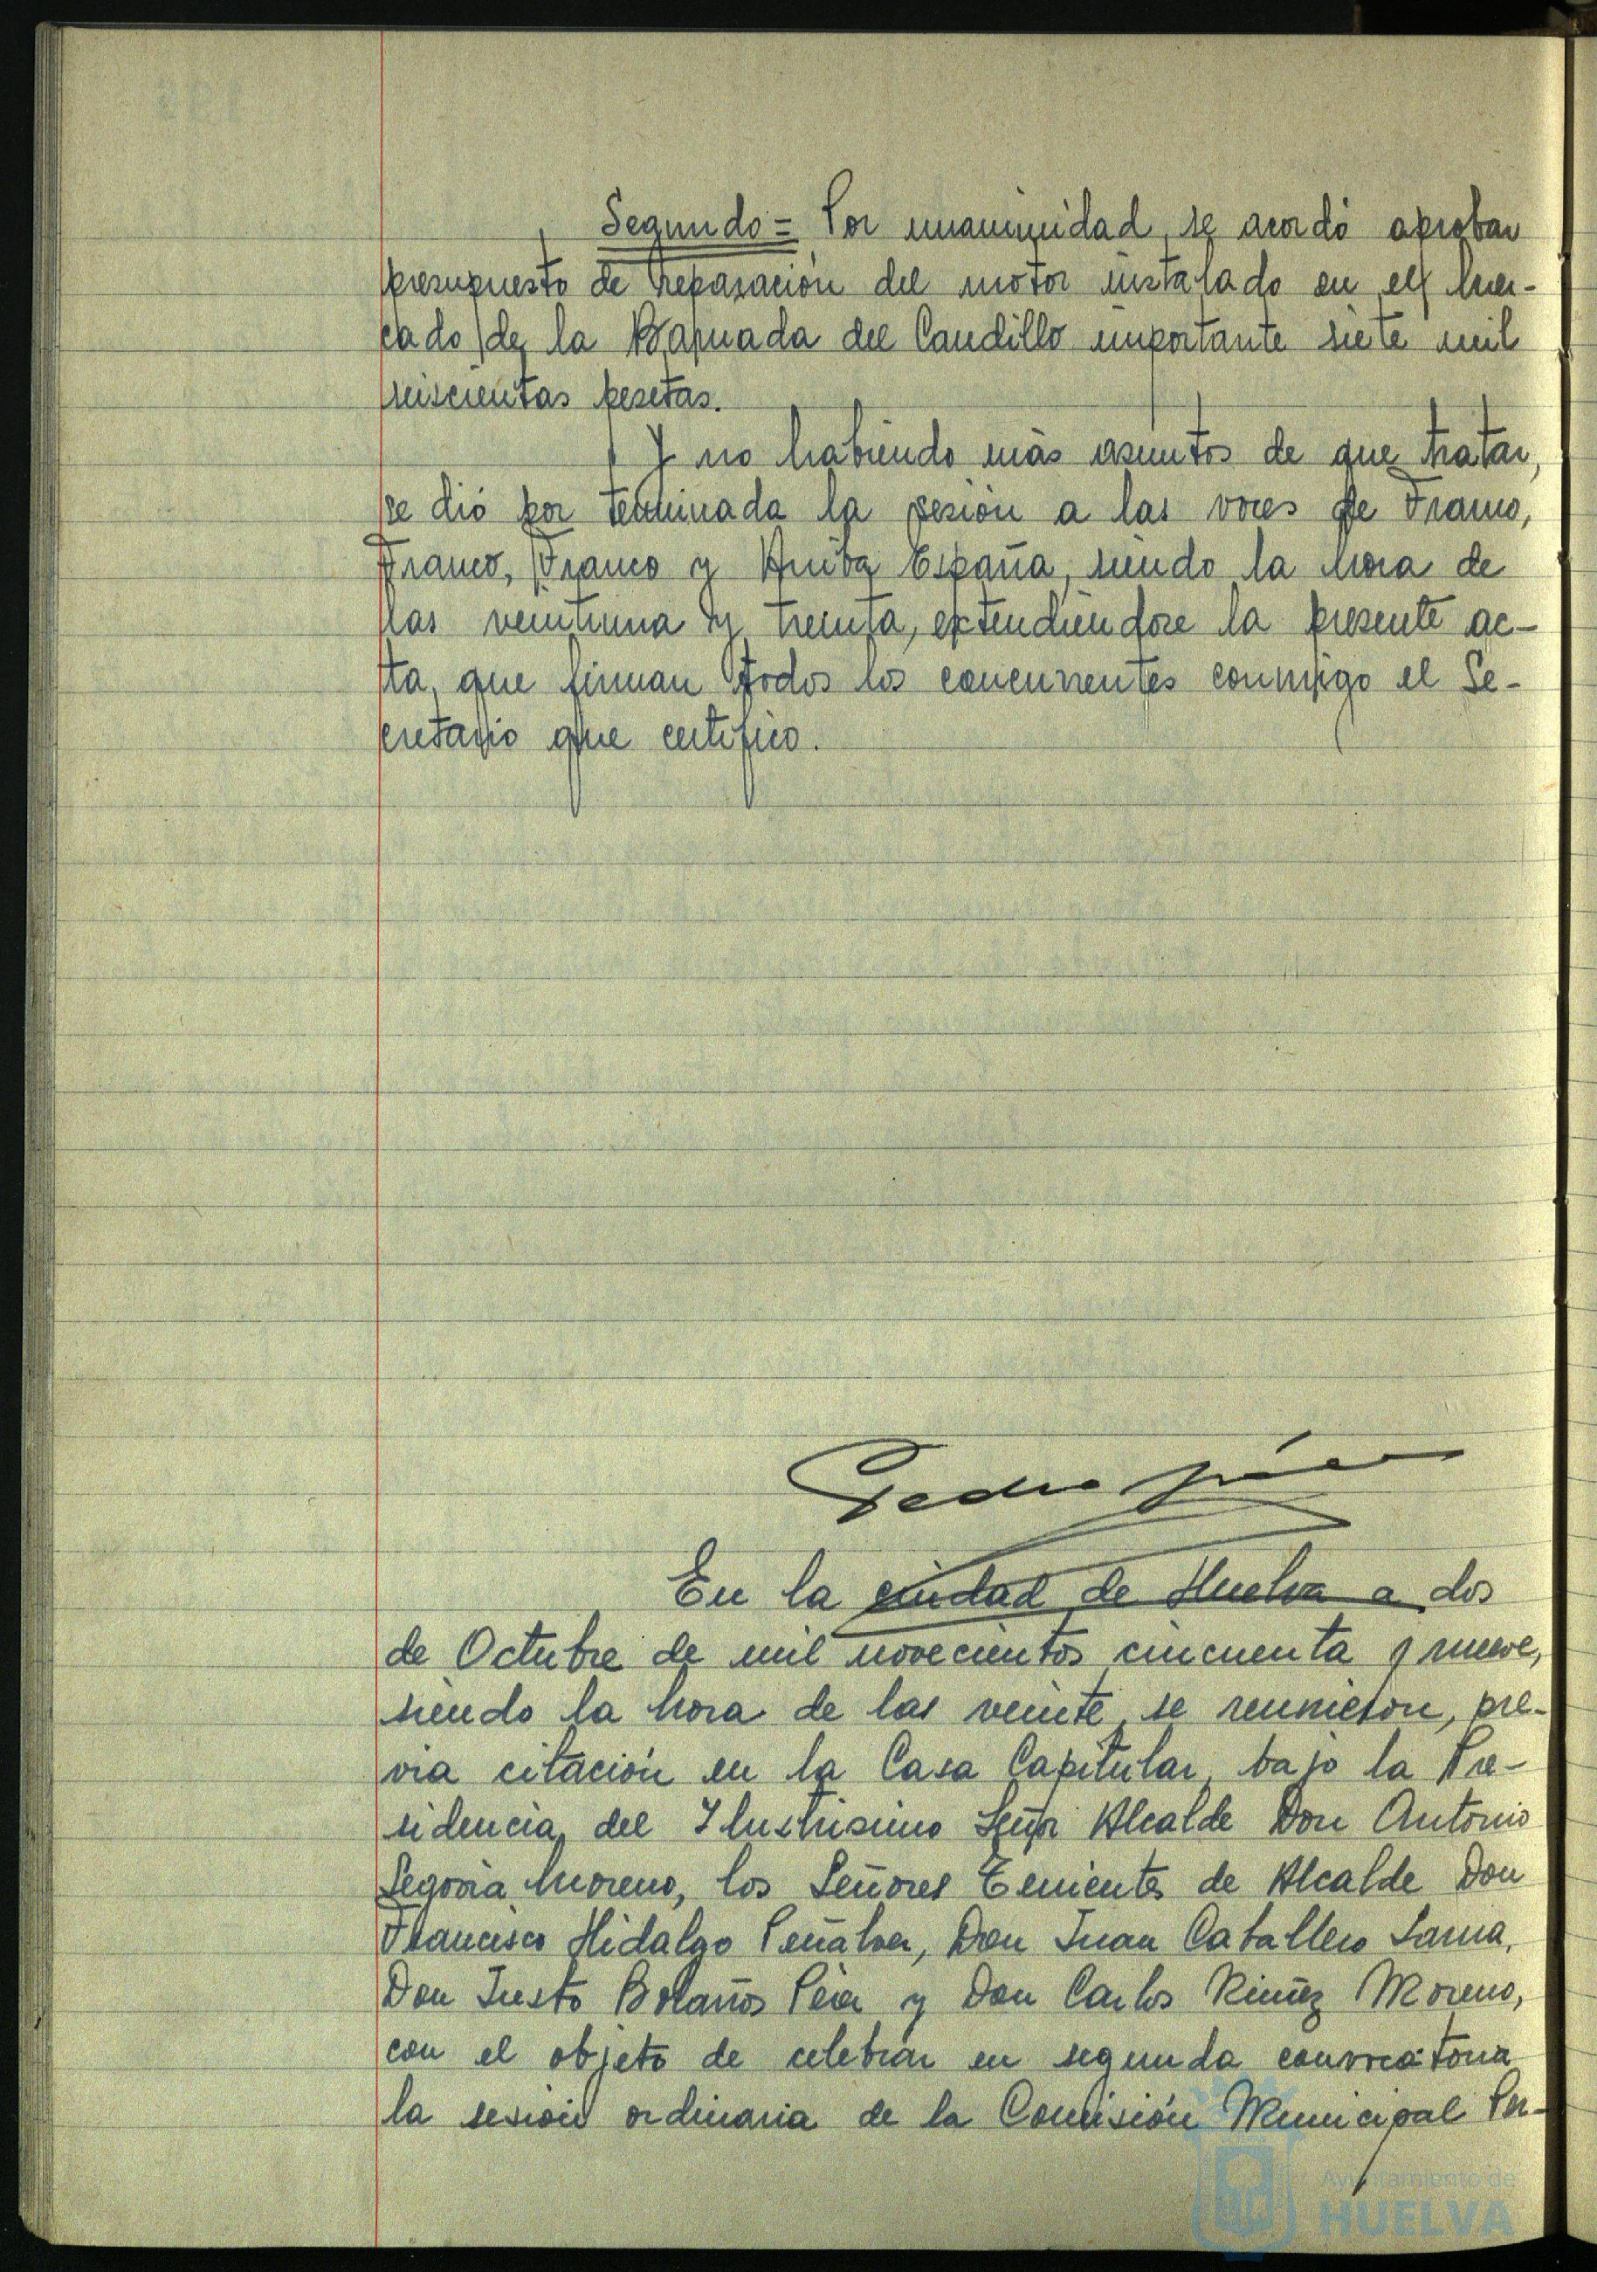 Segundo = Por unanimidad, se acordó aprobar
presupuesto de reparación del motor instalado en el Mer-
cado de la Barriada del Caudillo importante siete mil
seiscientas pesetas.
Y no habiendo más asuntos de que tratar,
se dió por terminada la sesión a las voces de Franco,
Franco, Franco y Arriba España, siendo la hora de
las veintiuna y treinta, extendiéndose la presente ac-
ta, que firman todos los concurrentes conmigo el Se-
cretario que certifico.
Pedro
En la ciudad de Huelva a dos
de Octubre de mil novecientos cincuenta y nueve,
siendo la hora de las veinte, se reunieron, pre-
via citación en la Casa Capitular, bajo la Pre-
sidencia del Ilustrisimo Señor Alcalde Don Antonio
Segovia Moreno, los Señores Tenientes de Alcalde Don
Francisco Hidalgo Peñalver, Don Juan Caballero
Don Justo Bolaños y Don Carlos Moreno,
con el objeto de celebrar en segunda convocatoria
la sesión ordinaria de la Comisión Municipal Per-
Ayuntamiento de
HUELVA